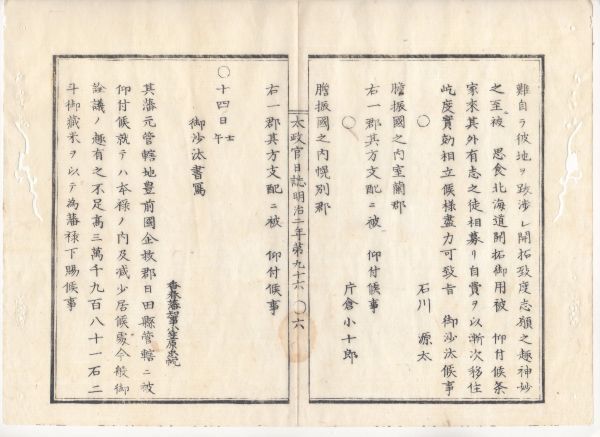 難自ラ彼地ヲ跋渉シ開拓致度志願之趣神妙
之至被 思食北海道開拓御用被 仰付候条
家来其外有志之徒相募リ自費ヲ以漸次移住
屹度實効相立候様盡力可致旨 御沙汰候事
○ 石川 源太
膽振國之内室蘭郡
右一郡其方支配ニ被 仰付候事
○ 片倉小十郎
膽振國之内幌別郡
太政官日誌明治二年第九十六 ○六
右一郡其方支配ニ被 仰付候事
○十四日 壬午
御沙汰書寫
香春藩知事小笠原忠忱
其藩元管轄地豊前國企救郡日田縣管轄ニ被
仰付候就テハ本禄ノ内及減少居候處今般御
詮議ノ趣有之不足高三萬千九百八十一石二
斗御蔵米ヲ以テ為藩禄下賜候事